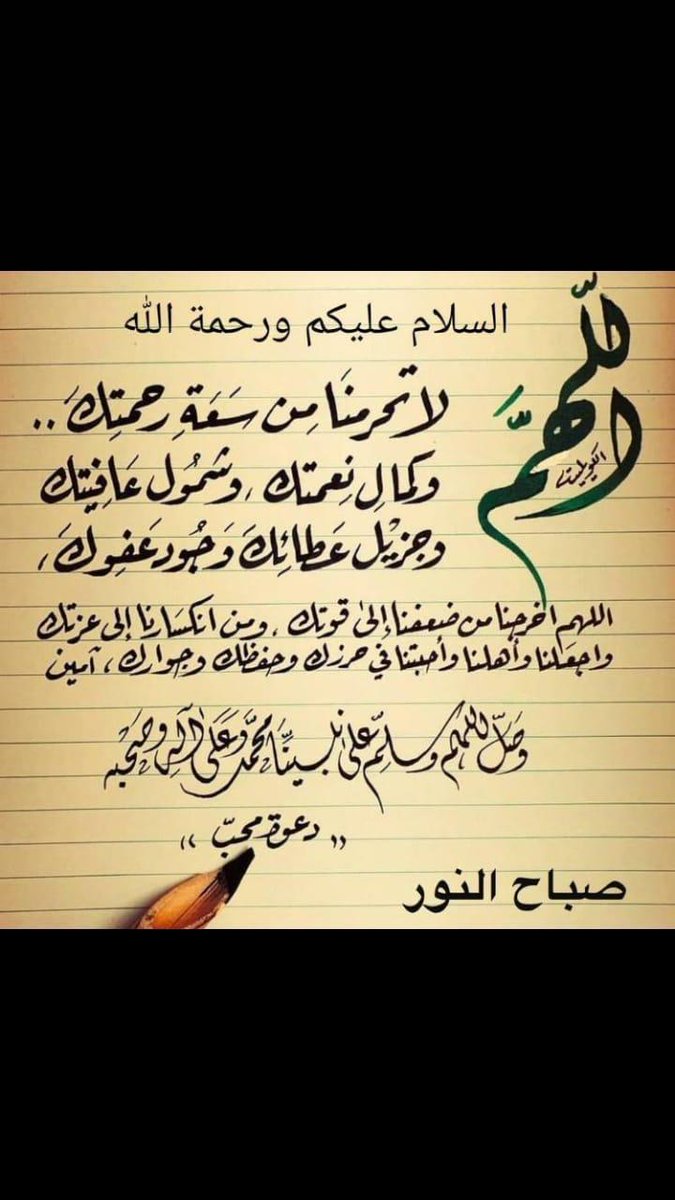 السلام عليكم ورحمة الله
اللهمَّ
لا تحرمنَا مِن سَعَةِ رحمتِكَ ..
وكمالِ نِعمتك ، وشمُول عَافِيتك
وجزيْل عَطائِكَ وَجُود عَفوِكَ ،
اللهم أخرجنا من ضعفنا إلىٰ قوتك ، ومن انكسَارنا إلى عزتك
واجعَلنا وأهلنا وأحبتنا في حرزك وحفظك وجوارك ، آمين
وَصَلِّ اللهم وسلِّم علىٰ نبينَّا محمَّد وَعَلىٰ آلهِ وصَحبه
،، دعوة محبّ ،،
صباح النور